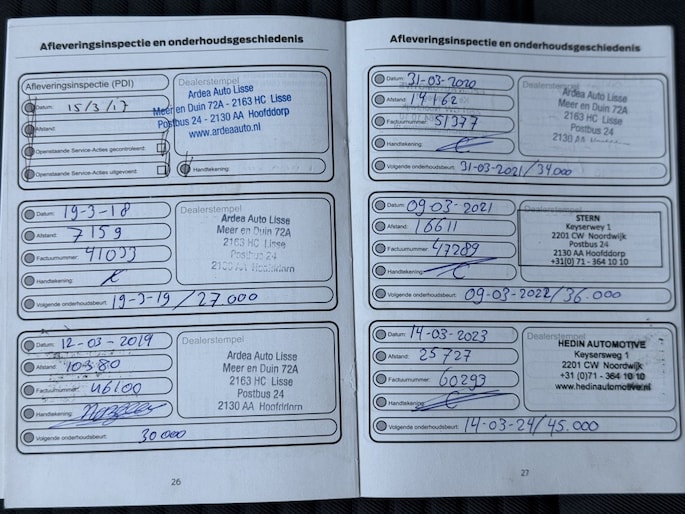 Afleveringsinspectie en onderhoudsgeschiedenis
Afleveringsinspectie (PDI)
Datum: 15/3/17
Afstand:
Openstaande Service-Acties gecontroleerd:
Openstaande Service-Acties uitgevoerd:
Dealerstempel
Ardea Auto Lisse
Meer en Duin 72A - 2163 HC Lisse
Postbus 24 - 2130 AA Hoofddorp
www.ardeaauto.nl
Handtekening:
Datum: 19-3-18
Afstand: 7159
Factuurnummer: 41093
Handtekening:
Volgende onderhoudsbeurt: 19-3-19/27.000
Dealerstempel
Ardea Auto Lisse
Meer en Duin 72A
2163 HC Lisse
Postbus 24
2130 AA Hoofddorp
Datum: 12-03-2019
Afstand: 10380
Factuurnummer: 46100
Handtekening:
Volgende onderhoudsbeurt: 30000
Dealerstempel
Ardea Auto Lisse
Meer en Duin 72A
2163 HC Lisse
Postbus 24
2130 AA Hoofddorp
26
Afleveringsinspectie en onderhoudsgeschiedenis
Datum: 31-03-2020
Afstand: 14162
Factuurnummer: 51377
Handtekening:
Volgende onderhoudsbeurt: 31-03-2021/34.000
Ardea Auto Lisse
Meer en Duin 72A
2163 HC Lisse
Postbus 24
2130 AA Hoofddorp
Datum: 09-03-2021
Afstand: 16611
Factuurnummer: 47289
Handtekening:
Volgende onderhoudsbeurt: 09-03-2022/36.000
Dealerstempel
STERN
Keyserweg 1
2201 CW Noordwijk
Postbus 24
2130 AA Hoofddorp
+31(0) 71 - 364 10 10
Datum: 14-03-2023
Afstand: 25727
Factuurnummer: 60293
Handtekening:
Volgende onderhoudsbeurt: 14-03-24/45.000
Dealerstempel
HEDIN AUTOMOTIVE
Keysersweg 1
2201 CW Noordwijk
+31 (0)71 - 364 10 10
www.hedinautomotive.nl
27